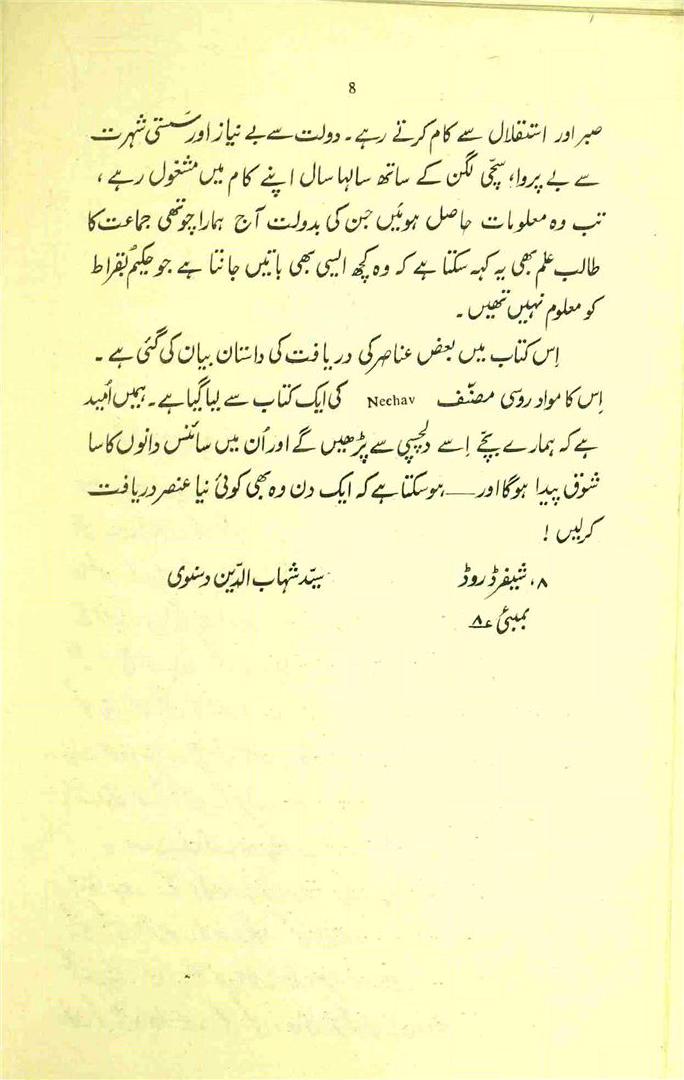 8
صبر اور استقلال سے کام کرتے رہے۔ دولت سے بے نیاز اور سستی شہرت
سے بے پروا، سچّی لگن کے ساتھ سالہا سال اپنے کام میں مشغول رہے،
تب وہ معلومات حاصل ہوئیں جن کی بدولت آج ہمارا چوتھی جماعت کا
طالب علم بھی یہ کہہ سکتا ہے کہ وہ کچھ ایسی بھی باتیں جانتا ہے جو حکیم بُقراط
کو معلوم نہیں تھیں۔
اِس کتاب میں بعض عناصر کی دریافت کی داستان بیان کی گئی ہے۔
اِس کا مواد روسی مصنّف Nechav کی ایک کتاب سے لیا گیا ہے۔ ہمیں اُمید
ہے کہ ہمارے بچّے اِسے دلچسپی سے پڑھیں گے اور اُن میں سائنس دانوں کا سا
شوق پیدا ہوگا اور — ہو سکتا ہے کہ ایک دن وہ بھی کوئی نیا عنصر دریافت
کرلیں!
۸، شیفرڈ روڈ سیّد شہاب الدّین دسنوی
بمبئی ۸